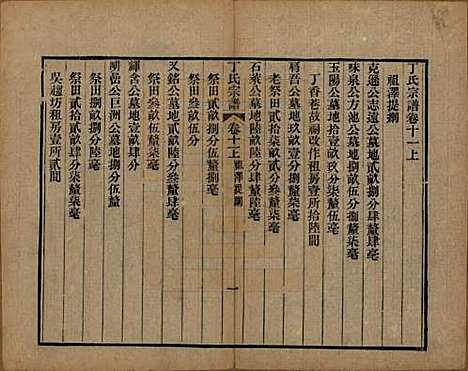 丁氏宗譜卷十一上
祖澤提綱
克遜公志遠公墓地貳畝捌分肆釐肆毫
味泉公方池公墓地捌畝伍分捌釐柒毫
玉陽公墓地拾壹畝玖分柒釐伍毫
丁香巷故祠改作租房壹所拾陸間
唇吾公墓地玖畝壹分壹釐柒毫
老祭田貳拾柒畝貳分叁釐柒毫
石萊公墓地陸畝陸分陸釐
丁氏宗譜
卷十一上
祖澤提綱
一
祭田貳畝捌分陸釐
祭田叁畝伍分
又銘公墓地貳畝貳分叁釐肆毫
祭田叁畝伍釐柒毫
輝舍公墓地壹畝肆分
明岳公巨洲公墓地壹畝捌分伍釐
祭田捌畝捌分陸毫
祭田貳拾畝陸分貳釐柒毫
吳趨坊租房壹所貳間